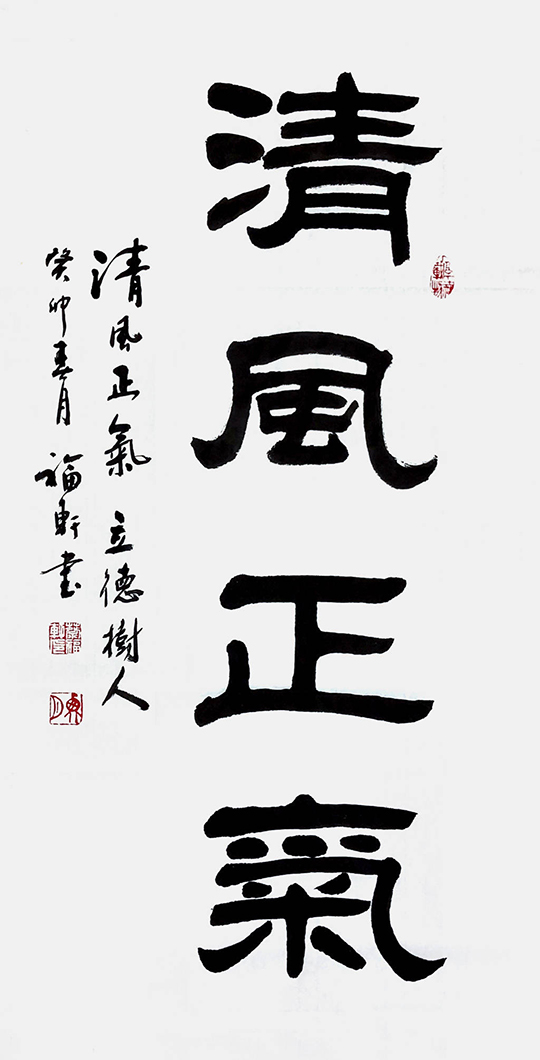 清風正氣
清風正氣 立德樹人
癸卯春月 福軒書